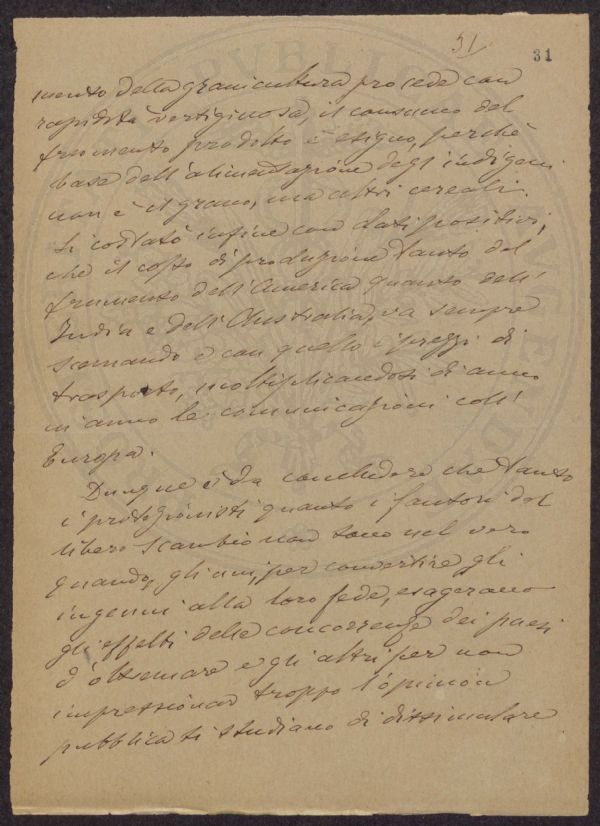 31
31
mento della granicultura procede con
rapidità vertiginosa, il consumo del
frumento prodotto è esiguo, perchè
base dell'alimentazione degl'indigeni
non è il grano, ma altri cereali.
Si costatò infine con dati positivi,
che il costo di produzione tanto del
frumento dell'America quanto dell'
India e dell'Australia, va sempre
scemando e con quello i prezzi di
trasporto, moltiplicandosi di anno
in anno le comunicazioni coll'
Europa.
Dunque è da concludere che tanto
i protezionisti quanto i fautori del
libero scambio non sono nel vero
quando, gli uni, per convertire gli
ingenui alla loro fede, esagerano
gli effetti delle concorrenze dei paesi
d'oltremare e gli altri per non
impressionar troppo l'opinion
pubblica si studiano di dissimulare